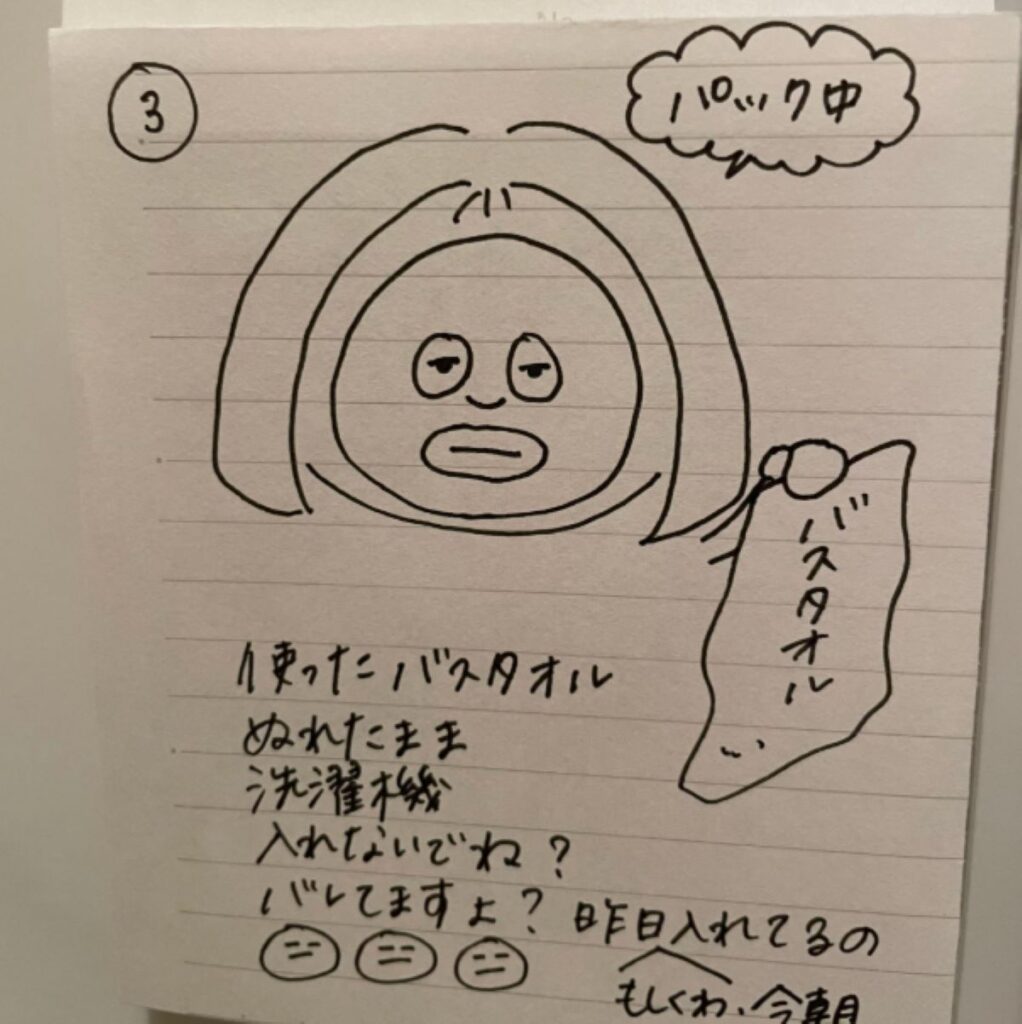 3
パック中
バスタオル
使ったバスタオル
ぬれたまま
洗濯機
入れないでね？
バレてますよ？昨日入れてるの
もしくわ、今朝